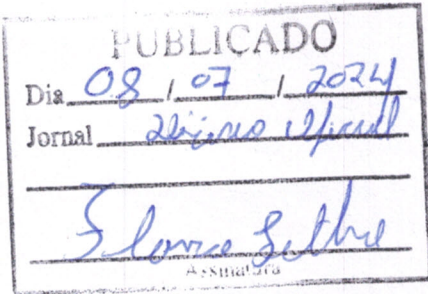 PUBLICADO
Dia 08 / 07 / 2024
Jornal Diário Oficial
Assinatura